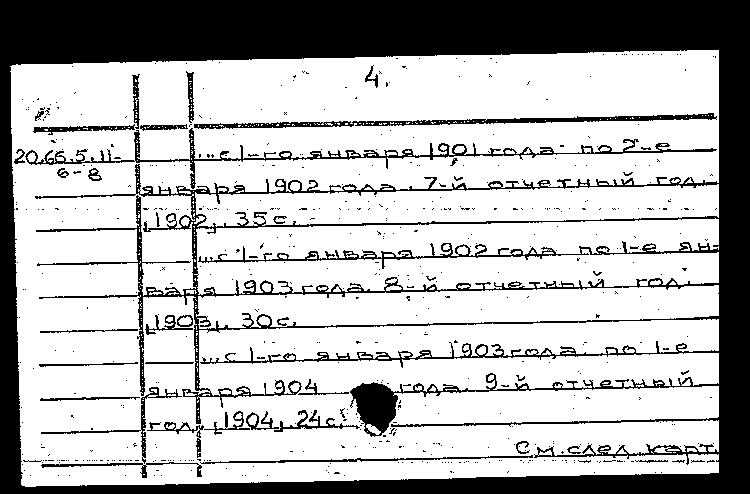 4.
20.66.5.11- ...с 1-го января 1901 года по 2-е
6-8
января 1902 года. 7-й отчетный год.
[1902]. 35 с.
...с 1-го января 1902 года по 1-е ян-
варя 1903 года. 8-й отчетный год.
[1903]. 30 с.
...с 1-го января 1903 года по 1-е
января 1904 года. 9-й отчетный
год. [1904]. 24 с.
См. след. карт.